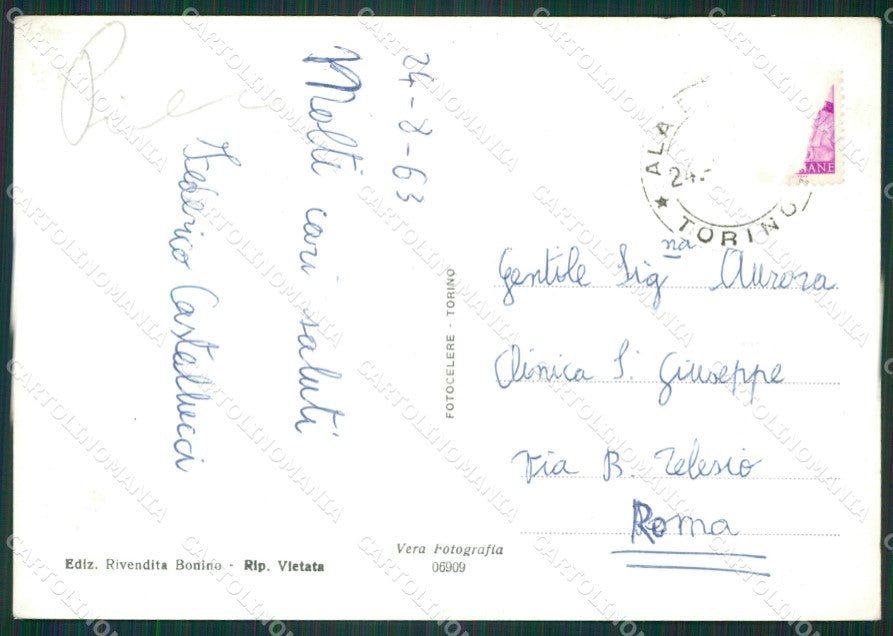 24-8-63
Molti cari saluti
Federico Castellucci
ALA
24.
TORINO
ANE
Gentile Sig.na Aurora
Clinica S. Giuseppe
Via B. Telesio
Roma
FOTOCELERE - TORINO
Vera Fotografia
06909
Ediz. Rivendita Bonino - Rip. Vietata
CARTOLINOMANIA